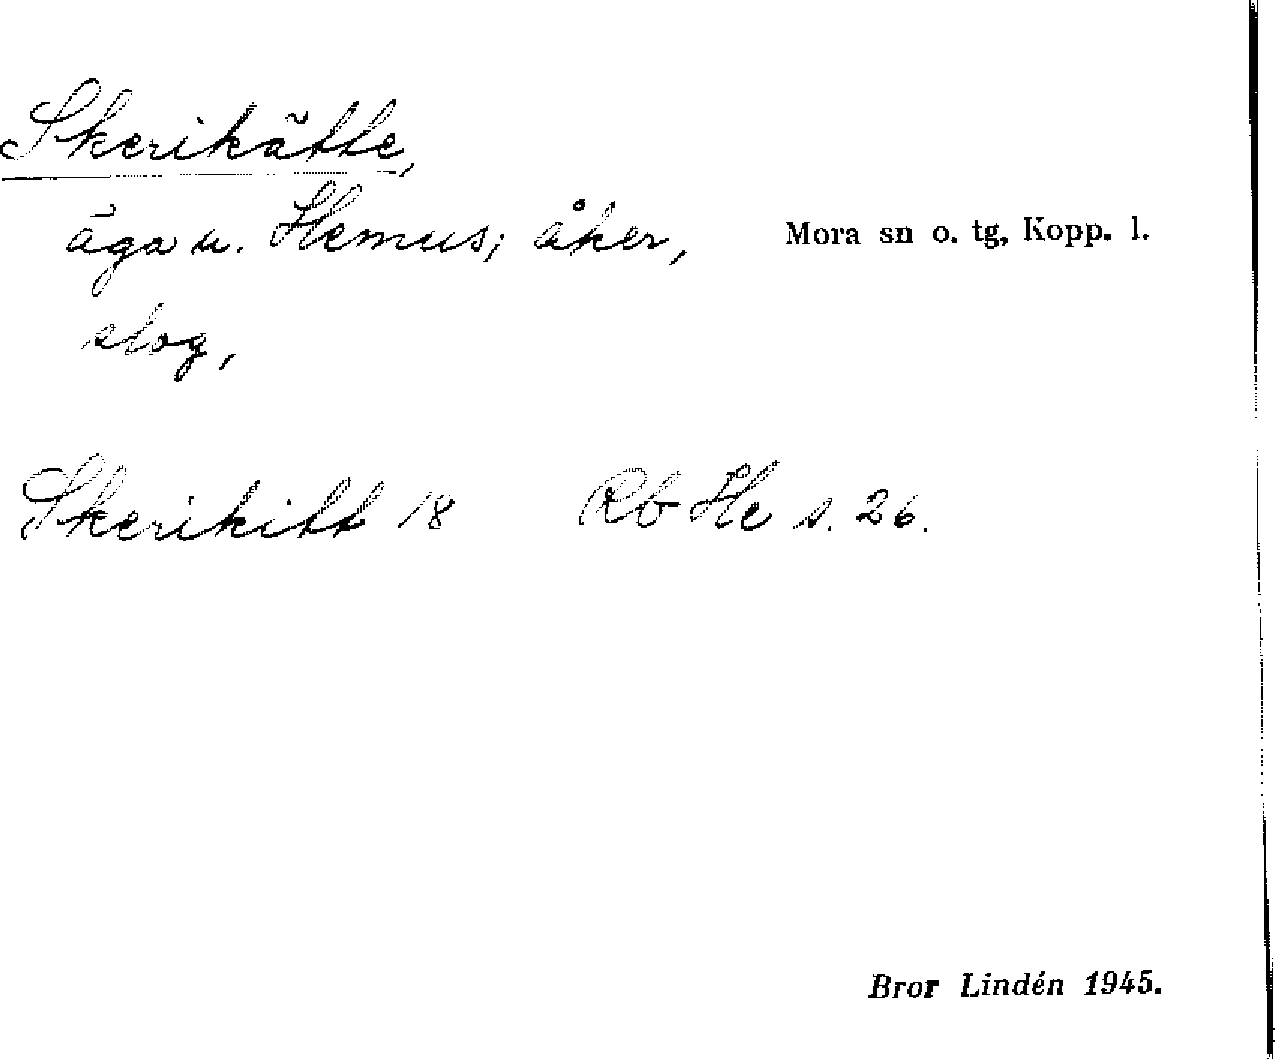 Skerikätte,
äga u. Hemus; åker,
Mora sn o. tg, Kopp. l.
slog,
Skerikitt 18 Rb He s. 26.
Bror Lindén 1945.